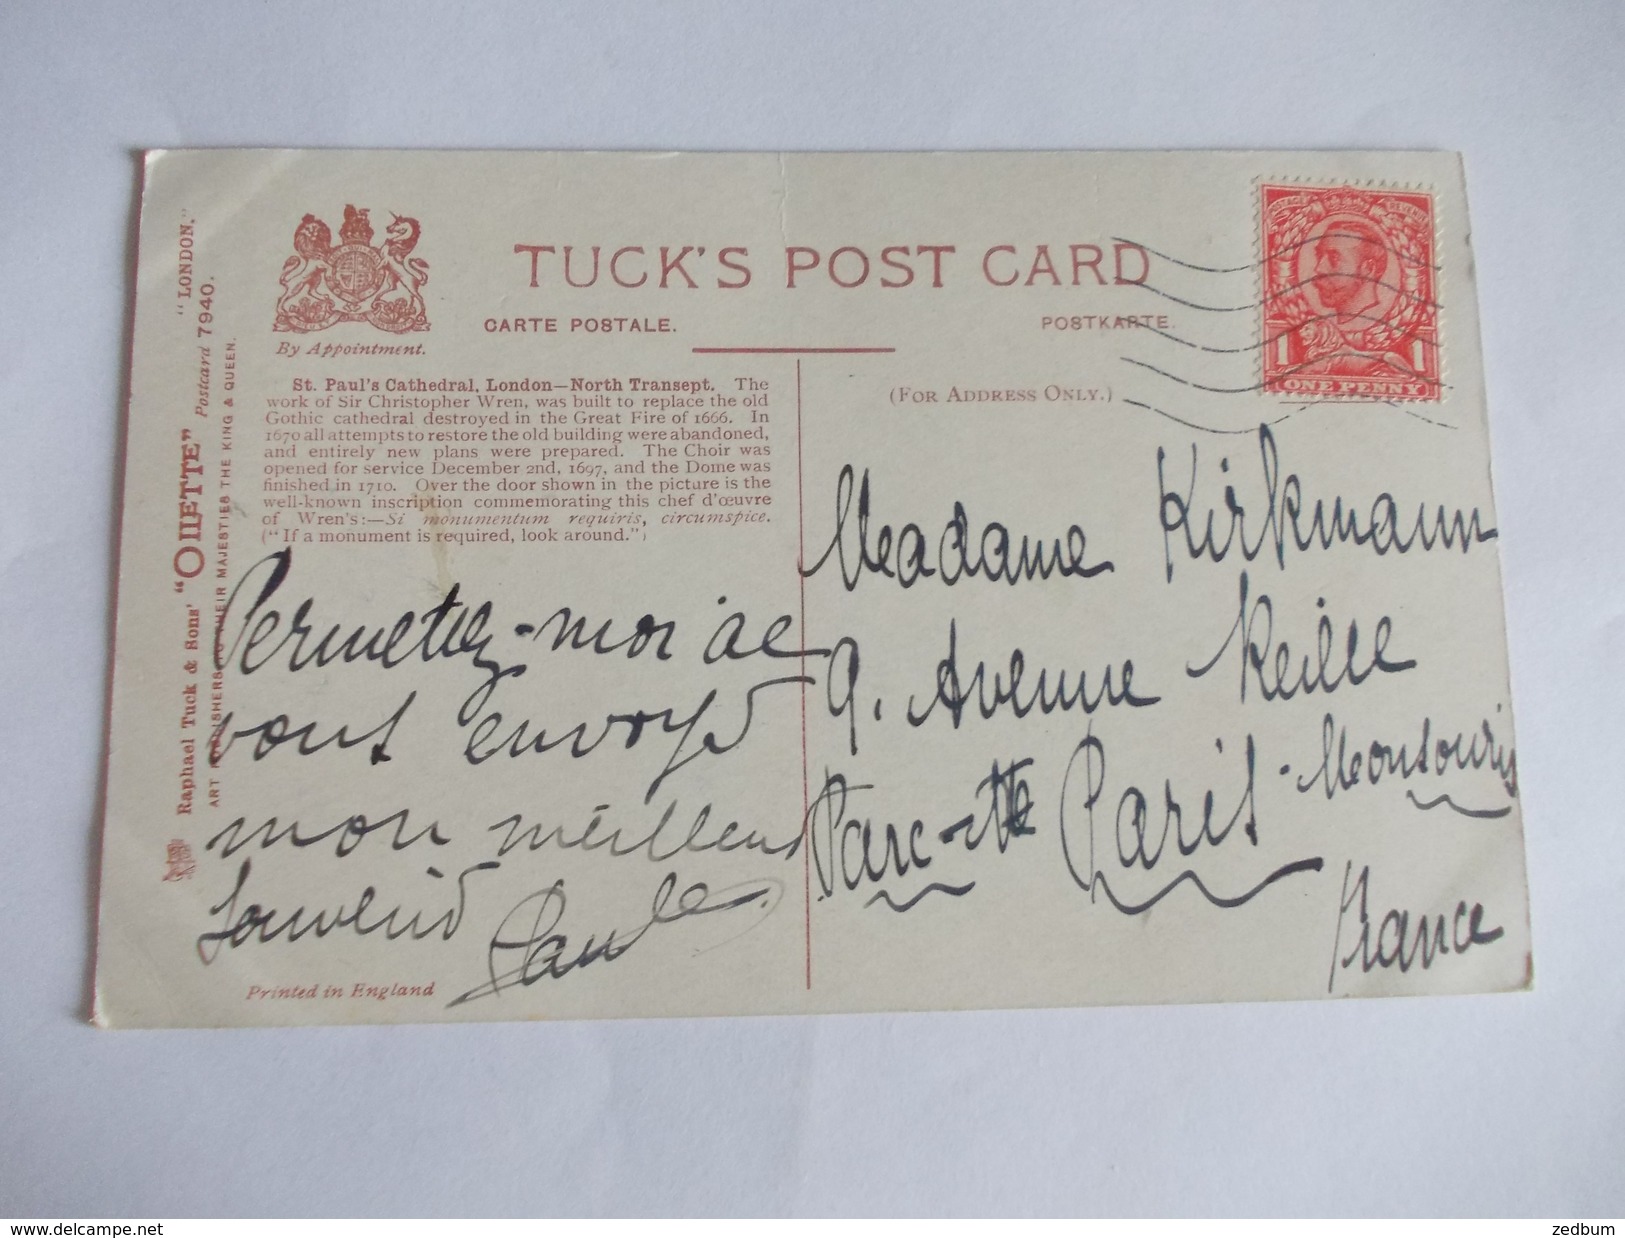 "LONDON."
Raphael Tuck & Sons' "OILETTE" Postcard 7940.
ART PUBLISHERS TO THEIR MAJESTIES THE KING & QUEEN.
By Appointment.
TUCK'S POST CARD
CARTE POSTALE.
POSTKARTE.
POSTAGE REVENUE
1 1
ONE PENNY
St. Paul's Cathedral, London—North Transept. The
work of Sir Christopher Wren, was built to replace the old
Gothic cathedral destroyed in the Great Fire of 1666. In
1670 all attempts to restore the old building were abandoned,
and entirely new plans were prepared. The Choir was
opened for service December 2nd, 1697, and the Dome was
finished in 1710. Over the door shown in the picture is the
well-known inscription commemorating this chef d'œuvre
of Wren's:—Si monumentum requiris, circumspice.
("If a monument is required, look around.")
Permettez-moi de
vous envoyer
mon meilleur
Souvenir
Paule.
Printed in England
(FOR ADDRESS ONLY.)
Madame Kirkmann
9. Avenue Reille
Parc-Mt Paris-Montsouris
France
www.delcampe.net
zedbum